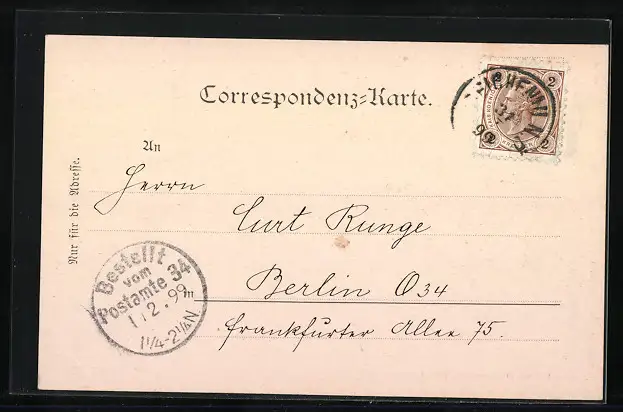 Correspondenz-Karte.
An
Herrn
Curt Runge
in
Berlin O34
Frankfurter Allee 75.
Nur für die Adresse.
Bestellt
vom
Postamte 34
1 2.99
1¼-2¼N
2 2
31
99